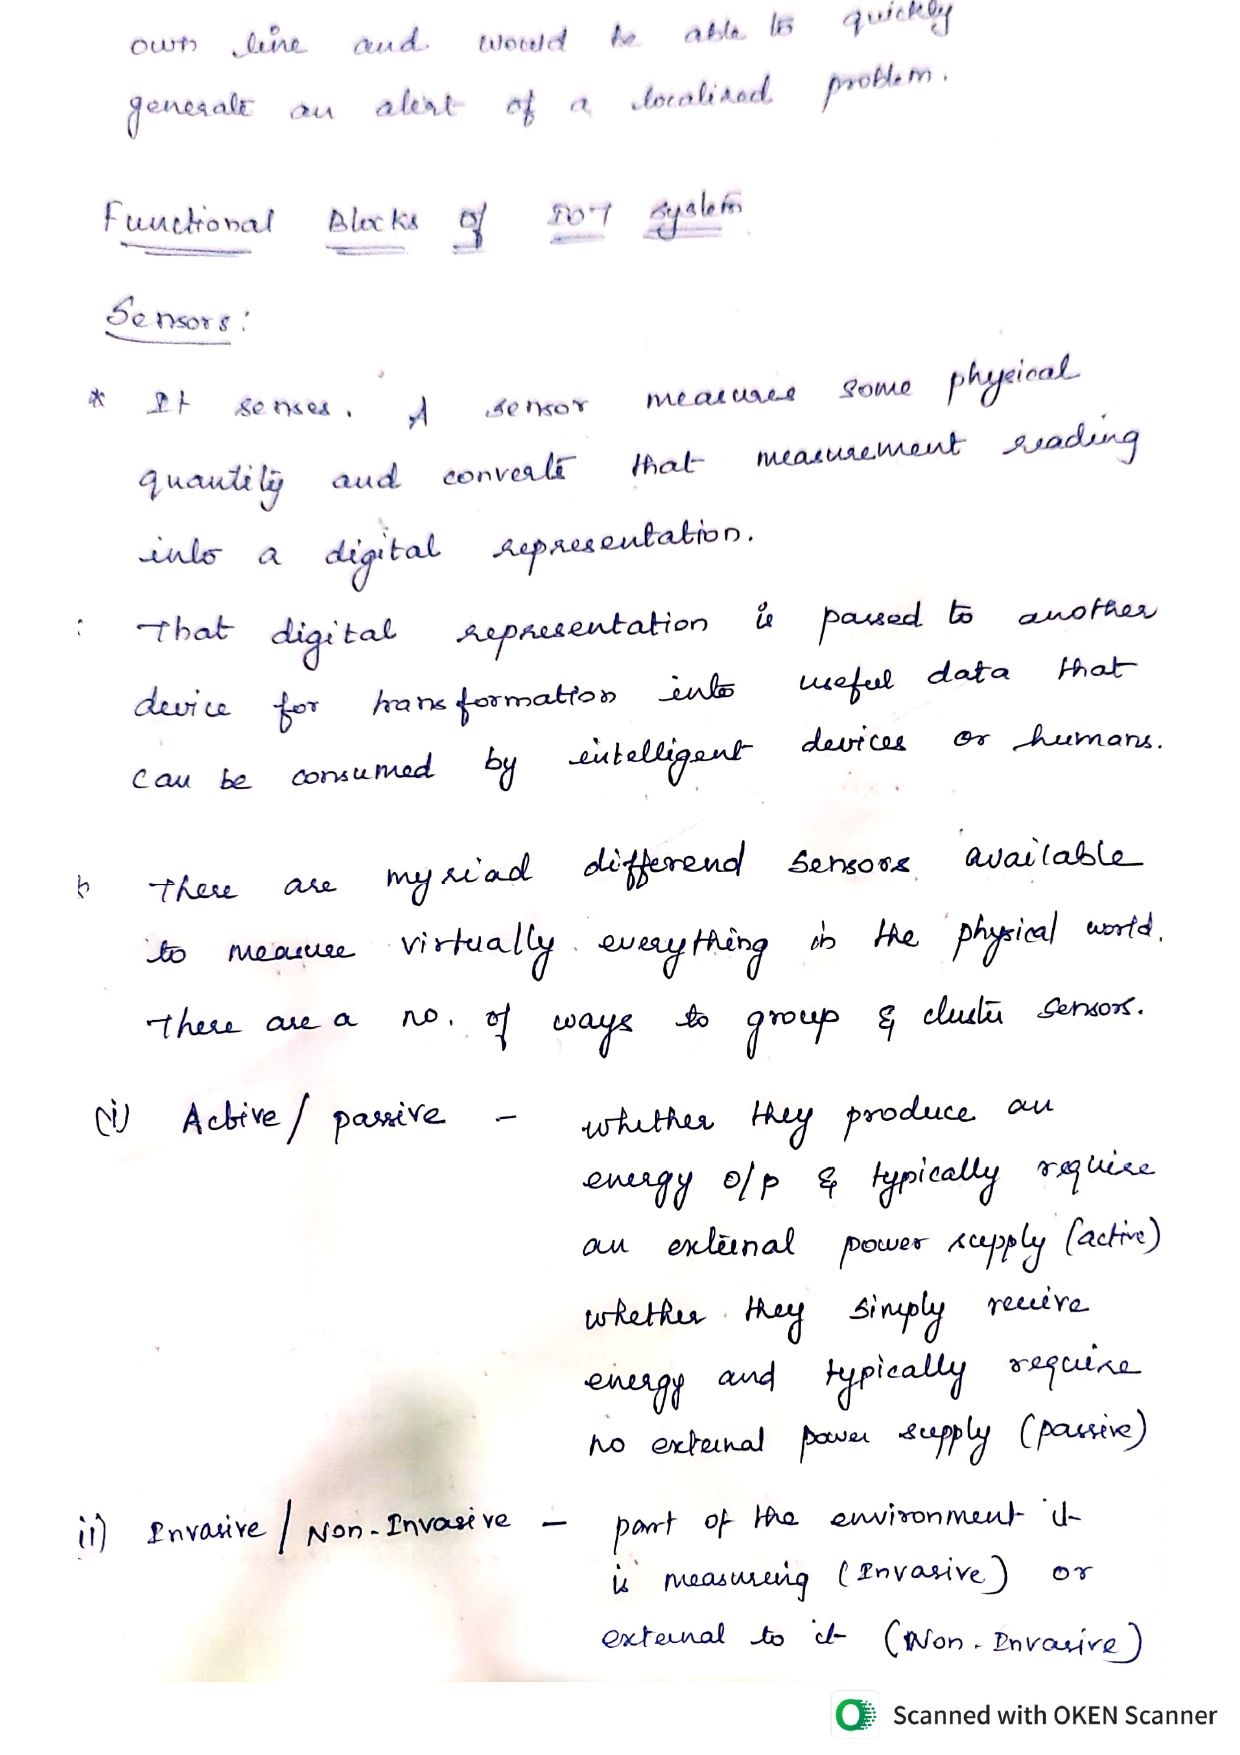 own line and would be able to quickly
generate an alert of a localized problem.
Functional Blocks of IOT system
Sensors:
* It senses. A sensor measures some physical
quantity and converts that measurement reading
into a digital representation.
: That digital representation is passed to another
device for transformation into useful data that
can be consumed by intelligent devices or humans.
There are myriad differend sensors available
to measure virtually everything in the physical world.
There are a no. of ways to group & cluster sensors.
(i) Active/passive - whether they produce an
energy o/p & typically require
an external power supply (active)
whether they simply receive
energy and typically require
no external power supply (passive)
ii) Invasive / Non-Invasive - part of the environment it
is measuring (Invasive) or
external to it (Non-Invasive)
Scanned with OKEN Scanner